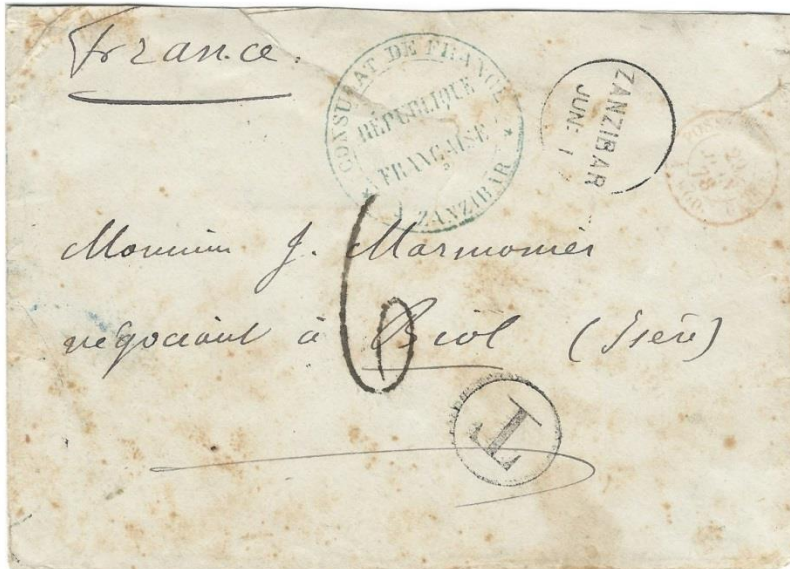 France.
CONSULAT DE FRANCE
RÉPUBLIQUE
FRANÇAISE
* A ZANZIBAR *
ZANZIBAR
JUN 1
29
78
Monsieur J. Marmonier
négociant à Biol (Isère)
6
T